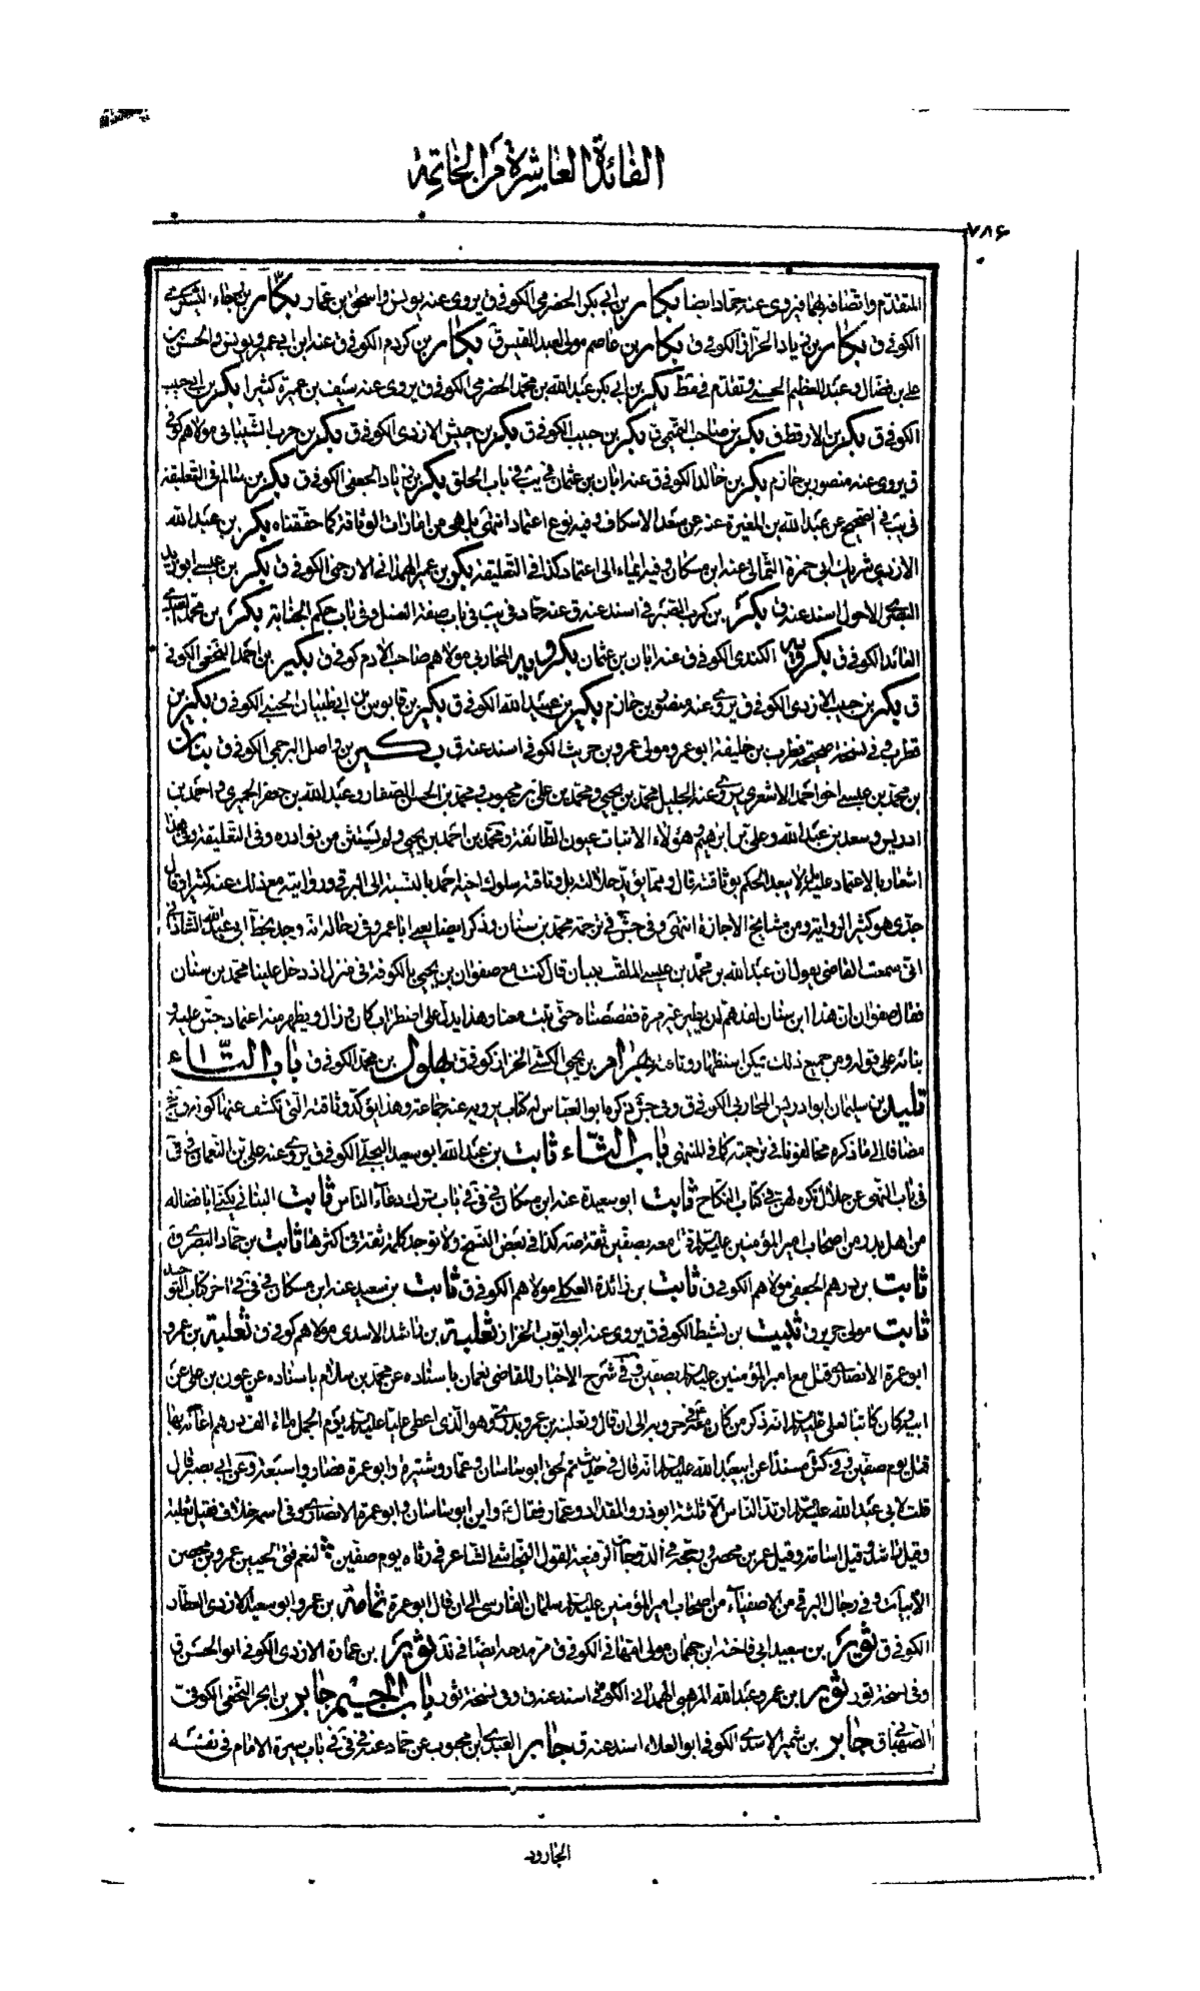 الفائدة العاشرة من الخاتمة
٧٨۶
المتقدم واتصافه بهما فيروى عنه حماد ايضا بكار بن ابي بكر الحضرمي الكوفي ق يروى عنه يونس واسحق بن عمار بكار بن رجاء اليشكري
الكوفي ق بكار بن زياد الخزاز الكوفي ق بكار بن عاصم مولى لعبد القيس ق بكار بن كردم الكوفي ق عنه ابن ابي عمير ويونس والحسن بن
علي بن فضال وعبد العظيم الحسني وتقدم في قط بكر بن ابي بكر عبد الله بن محمد الحضرمي الكوفي ق يروى عنه سيف بن عميرة كثيرا بكر بن ابي حبيب
الكوفي ق بكر بن الارقط ق بكر بن صاحب التميمي ق بكر بن حبيب الكوفي ق بكر بن حبيش الازدي الكوفي ق بكر بن حرب الشيباني مولاهم كوفي
ق يروى عنه منصور بن حازم بكر بن خالد الكوفي ق عنه ابان بن عثمان في يب في باب الحلق بكر بن زياد الجعفي الكوفي ق بكر بن سالم في التعليقة
في يب في الصحيح عن عبد الله بن المغيرة عنه عن سعد الاسكاف وفيه نوع اعتماد انتهى بل هي من امارات الوثاقة كما حققناه بكر بن عبد الله
الازدي شريك ابي حمزة الثمالي عنه ابن مسكان وفيه ايماء الى اعتماد كذا في التعليقة بكر بن عمير الهمداني الارحبي الكوفي ق بكر بن عيسى ابو زيد
البصري الاحول اسند عنه ق بكر بن كرب الصيرفي اسند عنه ق عنه حماد في يب في باب صفة الغسل وفي باب حكم الجنابة بكر بن محمد
العائد الكوفي ق بكرويه الكندي الكوفي ق عنه ابان بن عثمان بكرويه المحاربي مولاهم صاحب الادم كوفي ق بكير بن احمد النخعي الكوفي
ق بكير بن حبيب الازدي الكوفي ق يروى عنه منصور بن حازم بكير بن عبيد الله الكوفي ق بكير بن قابوس بن ابي ظبيان الجنبي الكوفي ق بكير بن
قطرب وفي نسخة صحيحة فطر بن خليفة ابو عمرو مولى عمرو بن حريث الكوفي اسند عنه ق بكير بن واصل البرجمي الكوفي ق بنان
بن محمد بن عيسى اخو احمد الاشعري يروى عنه الجليل محمد بن يحيى ومحمد بن علي بن محبوب ومحمد بن الحسن الصفار وعبد الله بن جعفر الحميري واحمد بن
ادريس وسعد بن عبد الله وعلي بن ابرهيم وهؤلاء الاثبات عيون الطائفة ومحمد بن احمد بن يحيى ولم يستثن من نوادره وفي التعليقة وفي هذا
اشعار بالاعتماد عليه بل لا يبعد الحكم بوثاقته قال ومما يؤيد جلالته بل وثاقته سلوك اخيه احمد بالنسبة الى البرقي وروايته مع ذلك عنه كثيرا وقال
جدي هو كثير الرواية ومن مشايخ الاجازة انتهى وفي جش في ترجمة محمد بن سنان وذكر ايضا يعني ابا عمرو في رجاله انه وجد بخط ابي عبد الله الشاذاني
اني سمعت القاضي يقول ان عبد الله بن محمد بن عيسى الملقب ببنان قال كنت مع صفوان بن يحيى بالكوفة في منزل اذ دخل علينا محمد بن سنان
فقال صفوان ان هذا ابن سنان لقد هم ان يطير غير مرة فقصصناه حتى ثبت معنا وهذا يدل على اضطراب كان وزال ويظهر منه اعتماد جش عليه و
بنائه على قوله ومن جميع ذلك يمكن استظهار وثاقته بهرام بن يحيى الكشي الخزاز كوفي ق بهلول بن محمد الكوفي ق باب التاء
تليد بن سليمان ابو ادريس المحاربي الكوفي ق وفي جش ذكره ابو العباس له كتاب يرويه عنه جماعة وهذا يؤكد وثاقته التي تكشف عنها كونه
مضافا الى ما ذكره مخالفونا في ترجمته كما في المنتهى باب الثاء ثابت بن عبد الله ابو سعيد البجلي الكوفي ق يروى عنه علي بن النعمان في في
في باب النهي عن خلال تكره لهن في كتاب النكاح ثابت ابو سعيدة عنه ابن مسكان في في في باب ترك دعاء الناس ثابت البناني يكنى ابا فضاله
من اهل بدر من اصحاب امير المؤمنين عليه السلام قتل معه بصفين ثقة صه كذا في بعض النسخ ولا توجد كلمة ثقة في اكثرها ثابت بن حماد البصري ق
ثابت بن درهم الجعفي مولاهم الكوفي ق ثابت بن زائدة العكلي مولاهم الكوفي ق ثابت بن سعيد عنه ابن مسكان في في في اخر كتاب التوحيد
ثابت مولى جرير ق ثبيت بن نشيط الكوفي ق يروى عنه ابو ايوب الخزاز ثعلبة بن راشد الاسدي مولاهم كوفي ق ثعلبة بن عمرو
ابو عمرة الانصاري قتل مع امير المؤمنين عليه السلام بصفين ي في شرح الاخبار للقاضي نعمان باسناده عن محمد بن سلام باسناده عن عون بن علي عن
ابيه وكان كاتبا لعلي عليه السلام انه ذكر من كان معه في حروبه الى ان قال وثعلبة بن عمرو بدري وهو الذي اعطى عليا عليه السلام يوم الجمل مائة الف درهم اعانه بها
قتل يوم صفين وفي كش مسندا عن ابي عبد الله عليه السلام انه قال في حديث ثم لحق ابو ساسان وعمار وشتيرة وابو عمرة فصاروا سبعة وعن ابي بصير قال
قلت لابي عبد الله عليه السلام ارتد الناس الا ثلثة ابو ذر والمقداد وعمار فقال ع واين ابو ساسان وابو عمرة الانصاري وفي اسمه خلاف فقيل ثعلبة
وقيل راشد وقيل اسامة وقيل عمر بن محصن ويتجه في الدرجات الرفيعة لقول النجاشي الشاعر في رثائه يوم صفين لنعم فتى الحيين عمرو بن محصن
الابيات وفي رجال البرقي من الاصفياء من اصحاب امير المؤمنين عليه السلام سلمان الفارسي الى ان قال ابو عمرة ثمامة بن عمرو ابو سعيد الازدي العطار
الكوفي ق ثوير بن سعيد ابي فاختة ابن جهمان مولى ام هاني الكوفي ق مر مدحه ايضا في نذ ثوير بن عمارة الازدي الكوفي ابو الحسن ق
وفي نسخة ثور ثوير ابن عمرو عبد الله المرهبي الهمداني الكوفي اسند عنه ق وفي نسخة ثور باب الجيم جابر بن ابجر النخعي الكوفي
الصهباني ق جابر بن شمير الاسدي الكوفي ابو العلاء اسند عنه ق جابر العبدي ابن محبوب عن حماد عنه في في في باب سيرة الامام في نفسه
الجارود